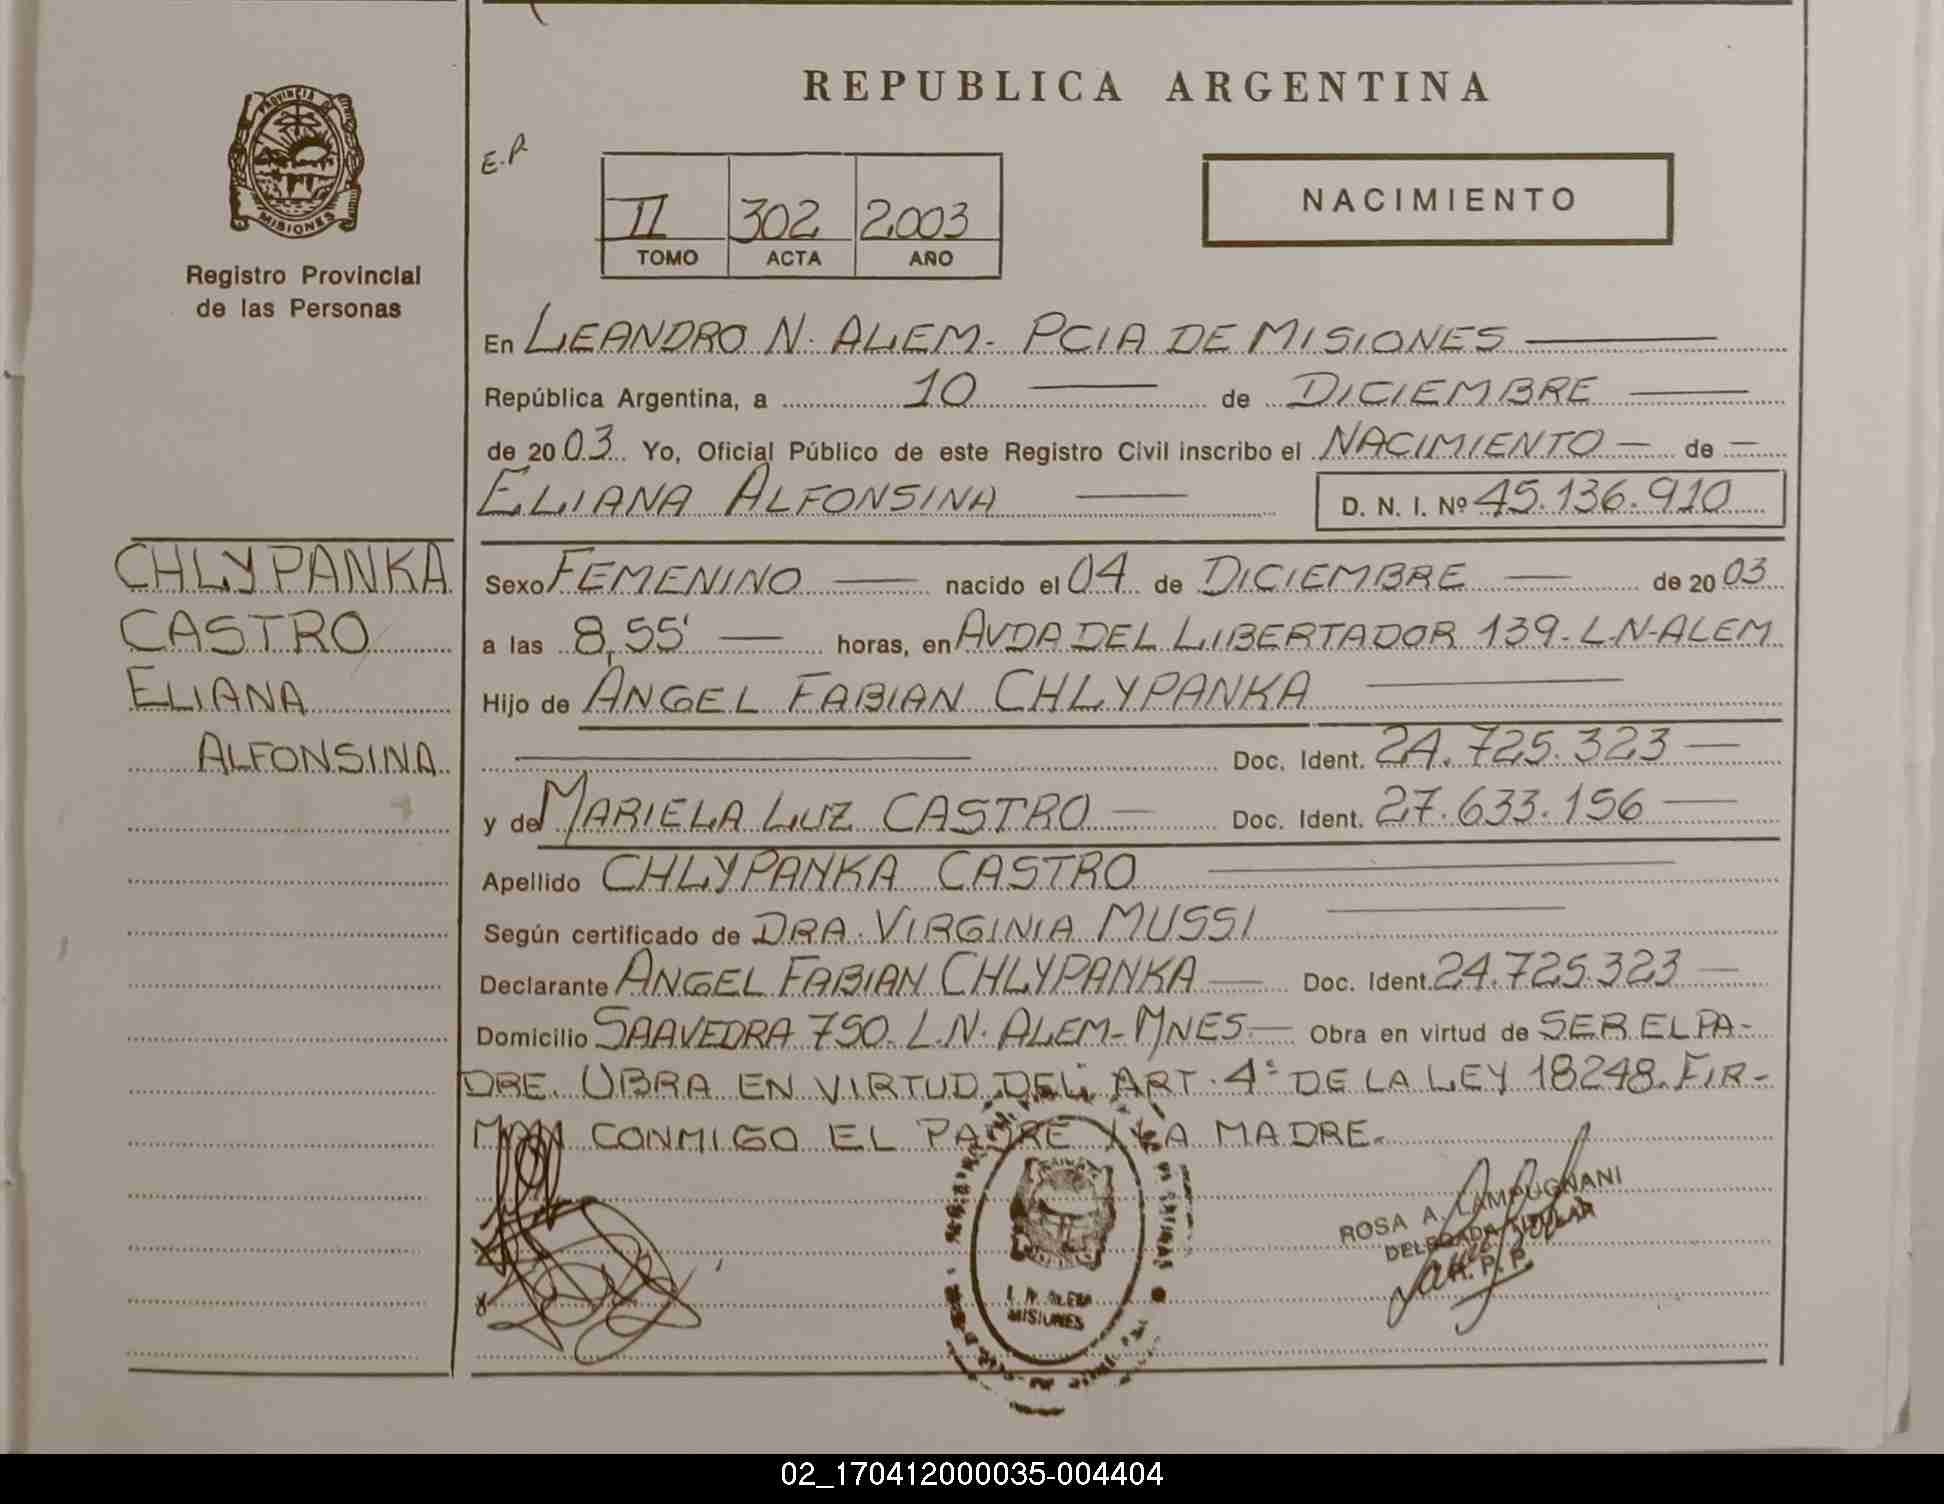 REPUBLICA ARGENTINA
PROVINCIA DE
MISIONES
Registro Provincial
de las Personas
E.P
II 302 2003
TOMO ACTA AÑO
NACIMIENTO
En LEANDRO N. ALEM - PCIA DE MISIONES
República Argentina, a 10 de DICIEMBRE
de 2003 Yo, Oficial Público de este Registro Civil inscribo el NACIMIENTO de
ELIANA ALFONSINA D. N. I. Nº 45.136.910
CHLYPANKA
CASTRO
ELIANA
ALFONSINA
Sexo FEMENINO nacido el 04 de DICIEMBRE de 2003
a las 8,55' horas, en AVDA DEL LIBERTADOR 139- L-N-ALEM
Hijo de ANGEL FABIAN CHLYPANKA
Doc. Ident. 24.725.323
y de MARIELA LUZ CASTRO Doc. Ident. 27.633.156
Apellido CHLYPANKA CASTRO
Según certificado de DRA. VIRGINIA MUSSI
Declarante ANGEL FABIAN CHLYPANKA Doc. Ident. 24.725.323
Domicilio SAAVEDRA 750. L.N. ALEM-MNES Obra en virtud de SER EL PA-
DRE. OBRA EN VIRTUD DEL ART. 4º DE LA LEY 18248. FIR-
MAN CONMIGO EL PADRE Y LA MADRE.
L. N. ALEM
MISIONES
ROSA A. LAMPUGNANI
DELEGADA TITULAR
R. P. P.
02_170412000035-004404